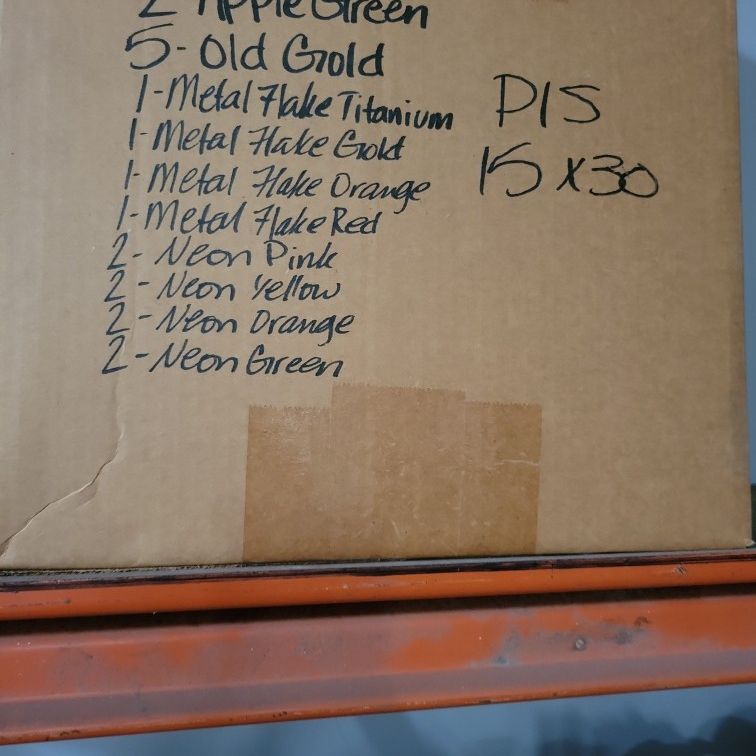 2-Apple Green
5-Old Gold
1-Metal Flake Titanium
1-Metal Flake Gold
1-Metal Flake Orange
1-Metal Flake Red
2-Neon Pink
2-Neon Yellow
2-Neon Orange
2-Neon Green
DIS
15x30